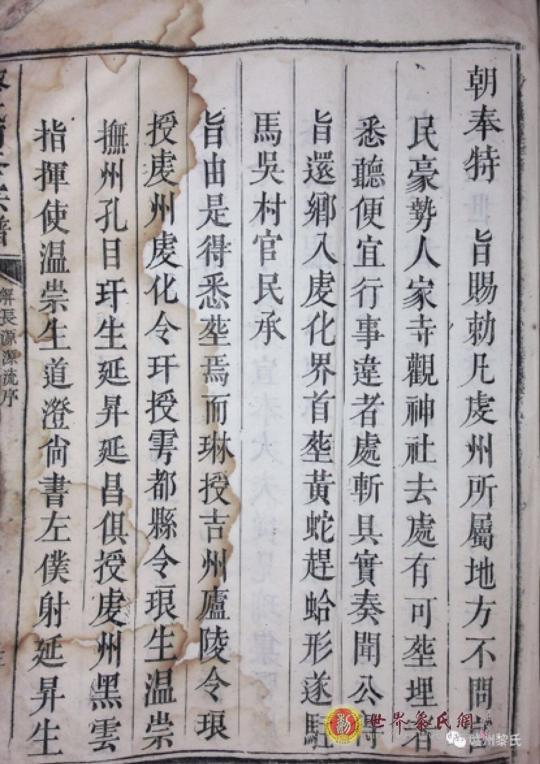 朝奉特　旨賜勅凡虔州所屬地方不問
民豪勢人家寺觀神社去處有可塟埋者
悉聽便宜行事違者處斬具實奏聞公得
旨還鄉入虔化界首塟黃蛇趕蛤形遂駐
馬吳村官民承
旨由是得悉塟焉而琳授吉州廬陵令琅
授虔州虔化令玕授雩都縣令琅生温崇
撫州孔目玕生延昇延昌俱授虔州黑雲
指揮使温崇生道澄尙書左僕射延昇生
解長源深流序
世界黎氏網
州黎氏